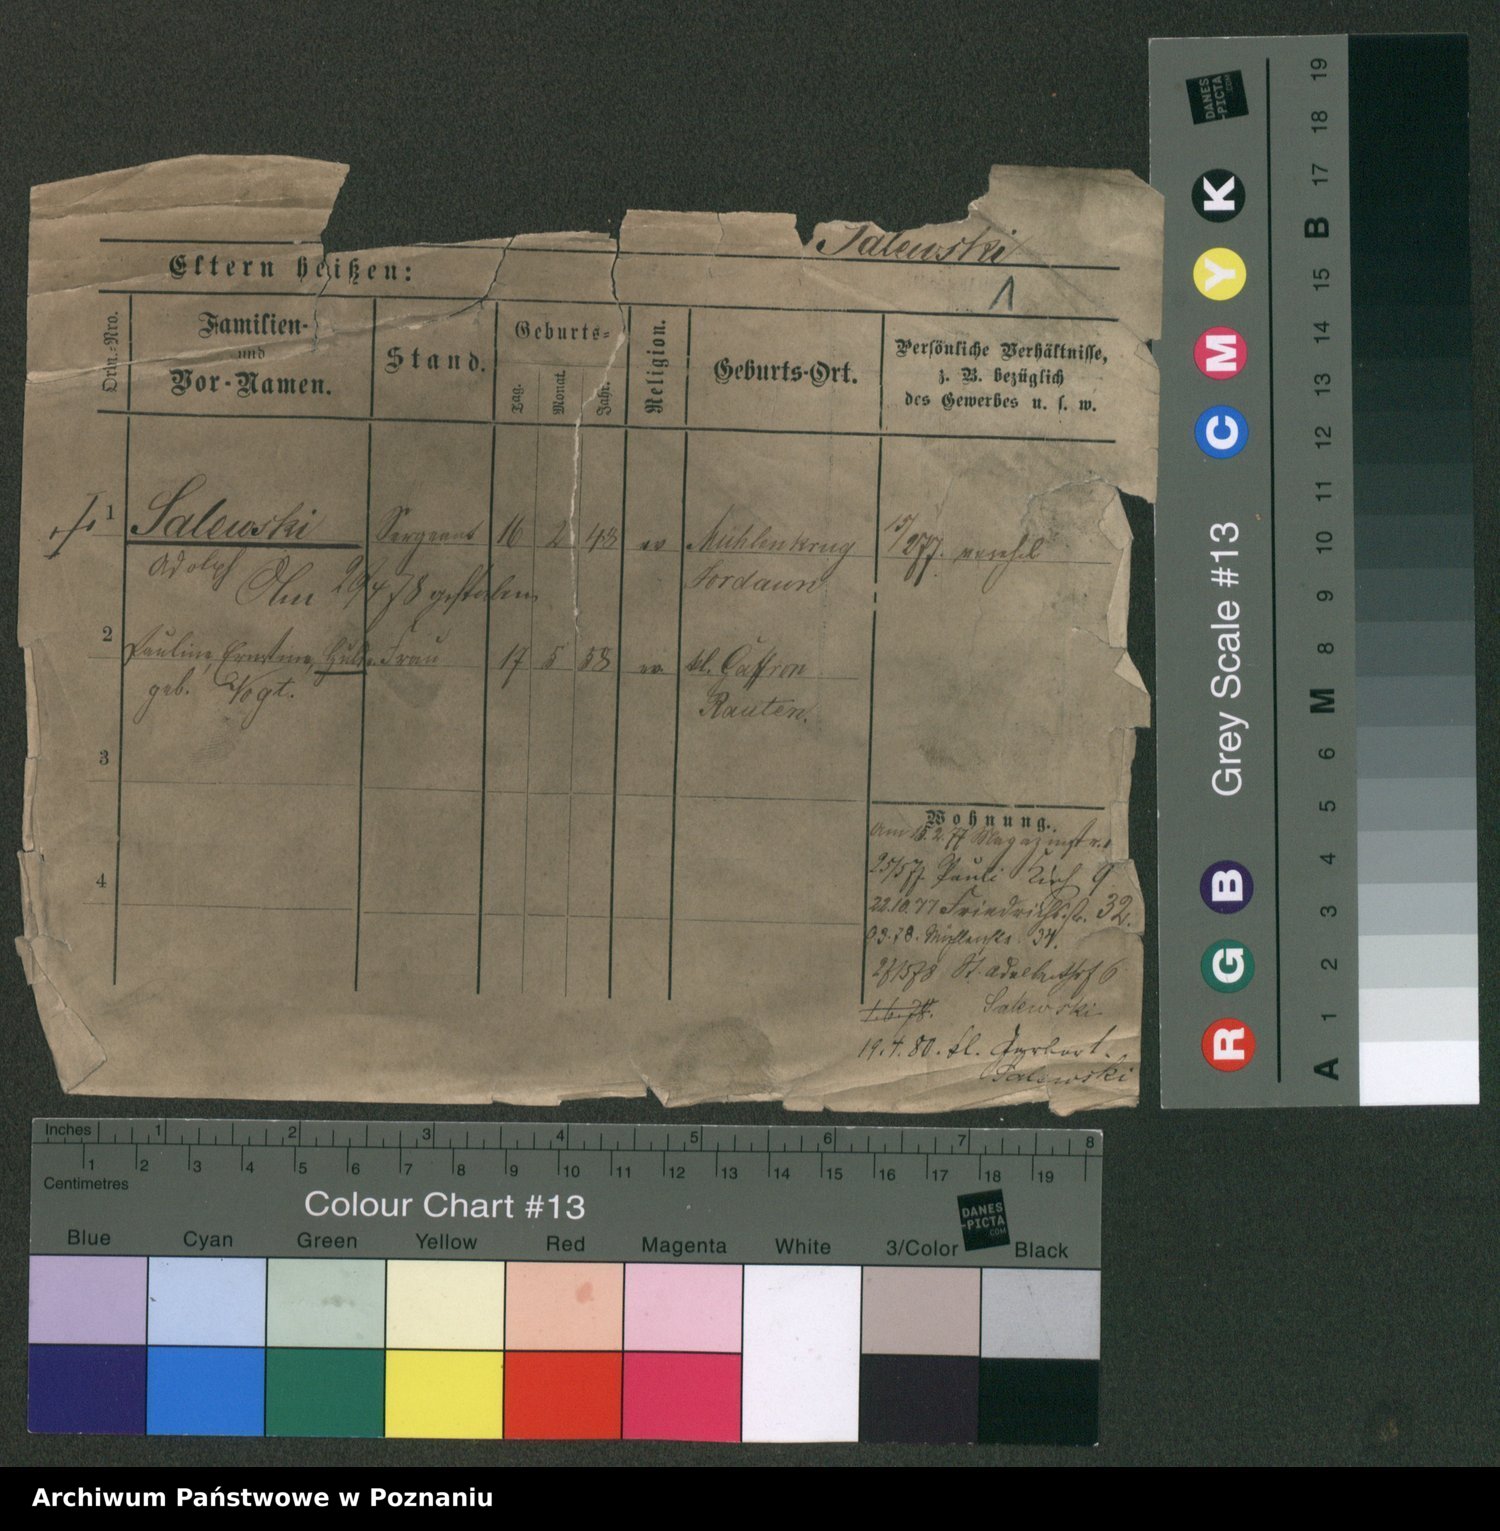 Salewski
Eltern heißen:
1
Ordn.-Nro.
Familien-
und
Vor-Namen.
Stand.
Geburts-
Tag.
Monat.
Jahr.
Religion.
Geburts-Ort.
Persönliche Verhältnisse,
z. B. bezüglich
des Gewerbes u. s. w.
1 Salewski Sergeant 16 2 48 ev Mühlenkrug
Adolph Jordawn
Am 29/4 78 gestorben
2 Pauline, Ernstine, Frau 17 5 58 ev kl. Gaffron
geb. Vogt. Rauten.
3
4
Wohnung.
Am 15.2.77 Magazinstr. 1
25/5 77 Pauli Kirch 9
22.10.77 Friedrichstr. 32.
3.78. Mühlenstr. 34.
27/5 78 St. Adalberthof 6
1.6.78. Salewski
19.4.80. kl. Gerberst.
Salewski
Inches 1 2 3 4 5 6 7 8
1 2 3 4 5 6 7 8 9 10 11 12 13 14 15 16 17 18 19
Centimetres
Colour Chart #13
DANES
-PICTA
.COM
Blue Cyan Green Yellow Red Magenta White 3/Color Black
Grey Scale #13
DANES
-PICTA
.COM
R G B C M Y K
A 1 2 3 4 5 6 M 8 9 10 11 12 13 14 15 B 17 18 19
Archiwum Państwowe w Poznaniu